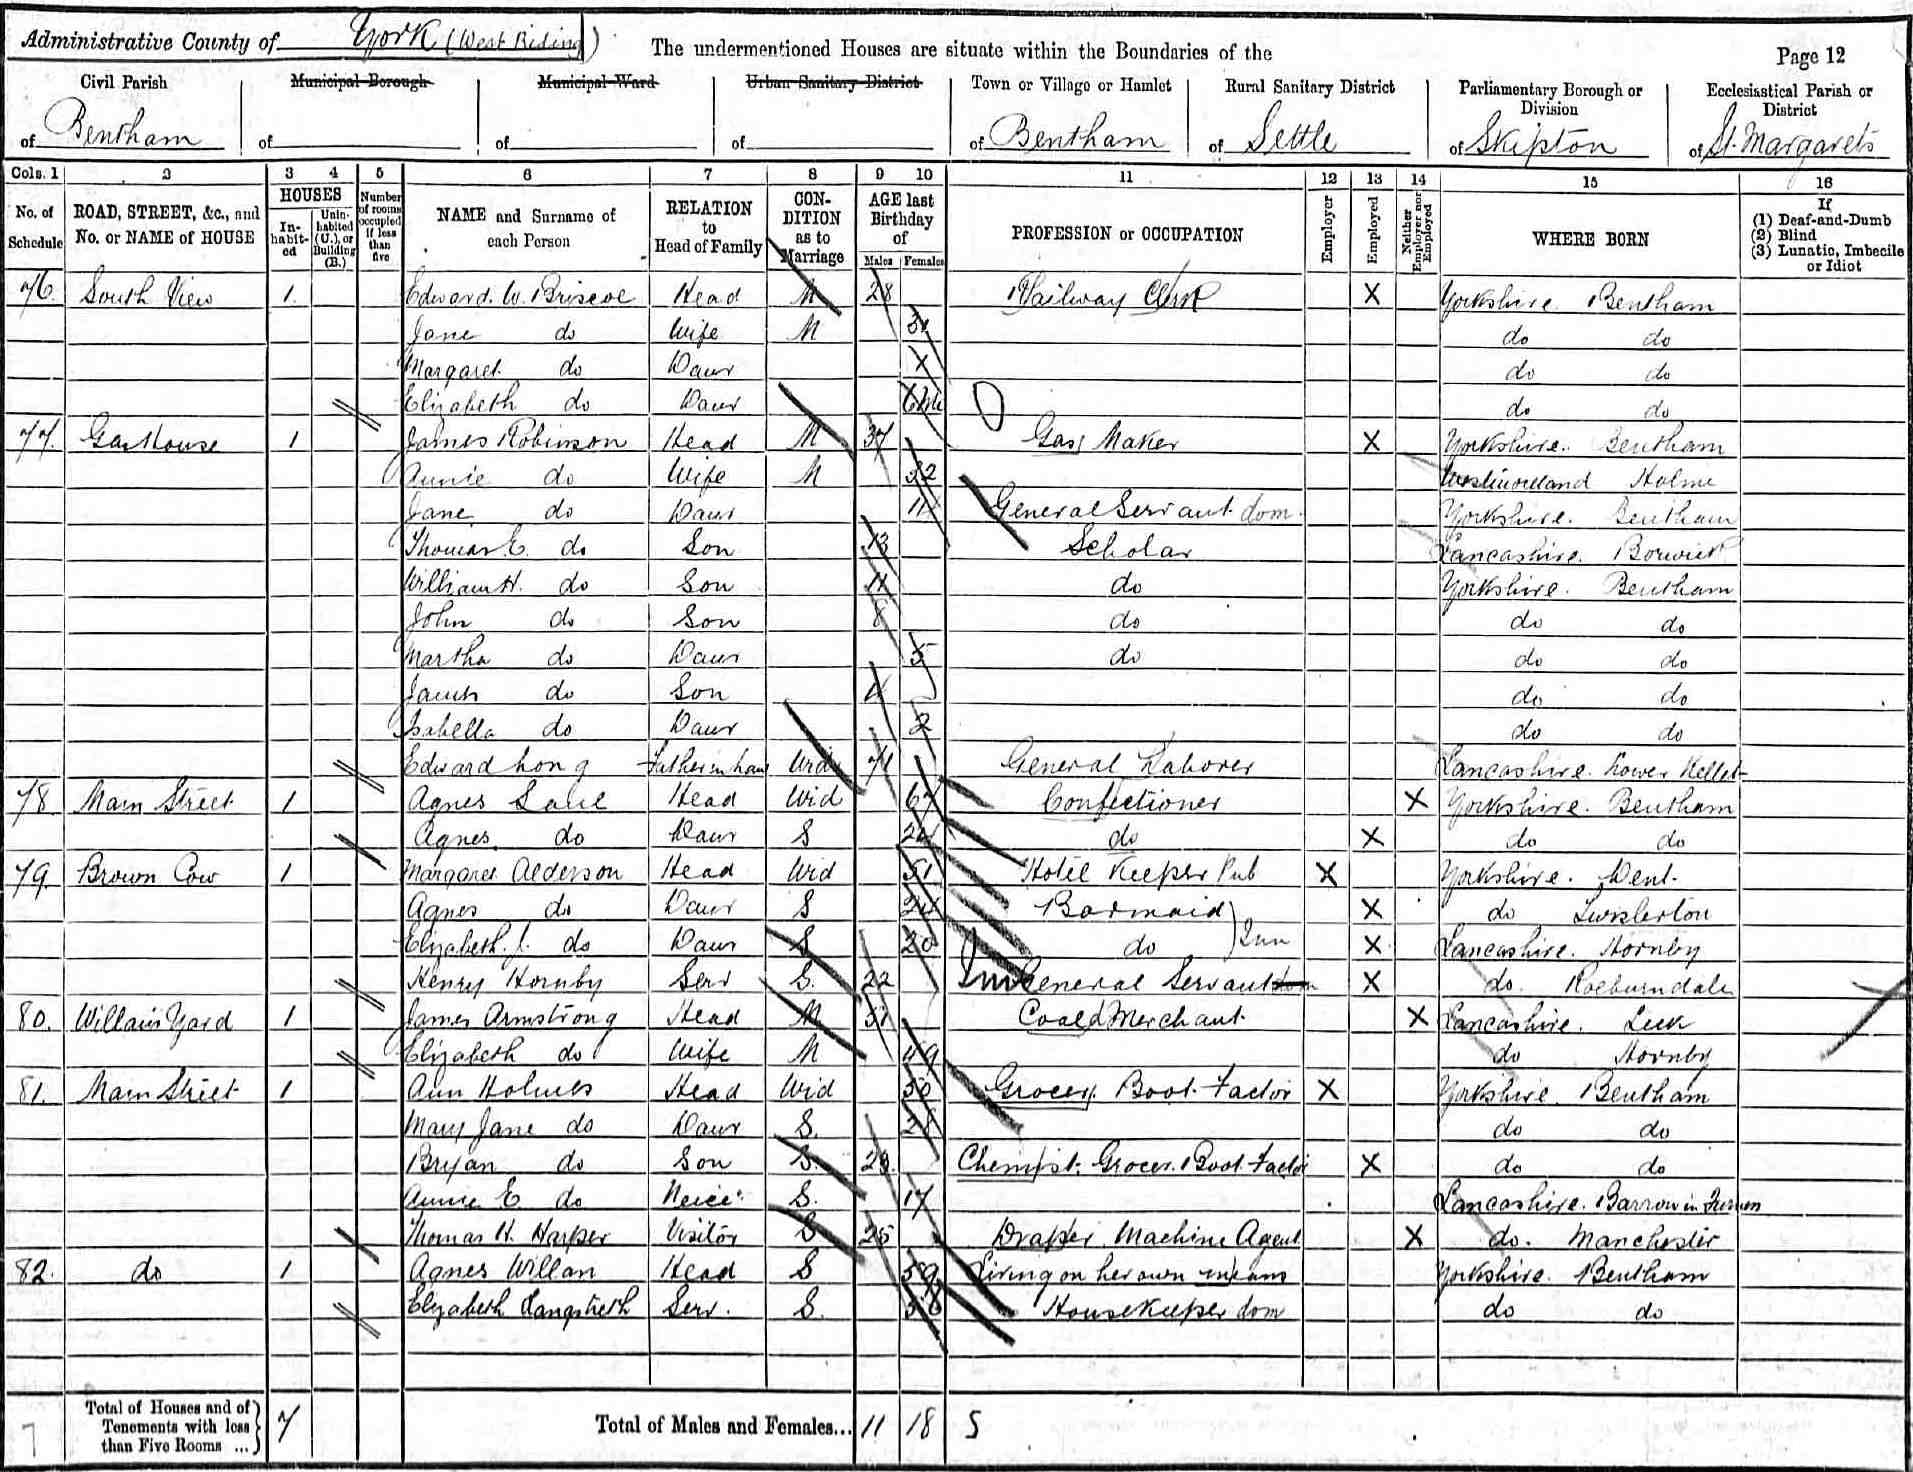 Administrative County of York (West Riding) The undermentioned Houses are situate within the Boundaries of the Page 12
Civil Parish Municipal Borough Municipal Ward Urban Sanitary District Town or Village or Hamlet Rural Sanitary District Parliamentary Borough or Division Ecclesiastical Parish or District
of Bentham of of of of Bentham of Settle of Skipton of St. Margarets
Cols. 1 2 3 4 5 6 7 8 9 10 11 12 13 14 15 16
No. of Schedule ROAD, STREET, &c., and No. or NAME of HOUSE HOUSES Inhabited Uninhabited (U.), or Building (B.) Number of rooms occupied if less than five NAME and Surname of each Person RELATION to Head of Family CONDITION as to Marriage AGE last Birthday of Males Females PROFESSION or OCCUPATION Employer Employed Neither Employer nor Employed WHERE BORN If (1) Deaf-and-Dumb (2) Blind (3) Lunatic, Imbecile or Idiot
76. South View 1 Edward. W. Briscoe Head M 28 Railway Clerk X Yorkshire. Bentham
Jane do Wife M 31 do do
Margaret do Daur do do
Elizabeth do Daur do do
77. Gas House 1 James Robinson Head M 37 Gas Maker X Yorkshire. Bentham
Annie do Wife M 32 Westmoreland Holme
Jane do Daur General Servant dom. Yorkshire. Bentham
Thomas E. do Son 13 Scholar Lancashire. Borwick
William H. do Son 11 do Yorkshire. Bentham
John do Son 8 do do do
Martha do Daur 5 do do do
James do Son 4 do do
Isabella do Daur 2 do do
Edward Long Father in Law Widr 71 General Laborer Lancashire. Lower Kellet
78 Main Street 1 Agnes Saul Head Wid 67 Confectioner X Yorkshire. Bentham
Agnes do Daur S do X do do
79. Brown Cow 1 Margaret Alderson Head Wid 51 Hotel Keeper Pub X Yorkshire. Dent.
Agnes do Daur S 24 Barmaid X do
Elizabeth J. do Daur S 20 do Inn X Lancashire. Hornby
Henry Hornby Serv S. 22 Inn General Servant dom X do. Roeburndale
80. Willan's Yard 1 James Armstrong Head M 51 Coal Merchant X Lancashire. Leck
Elizabeth do Wife M 49 do Hornby
81. Main Street 1 Ann Holmes Head Wid 50 Grocer, Boot Factor X Yorkshire. Bentham
Mary Jane do Daur S. 28 do do
Bryan do Son S. 23. Chemist. Grocer. Boot Factor X do do
Annie E. do Neice S. 17 Lancashire. Barrow in Furness
Thomas H. Harper Visitor S 25 Draper. Machine Agent X do. Manchester
82. do 1 Agnes Willan Head S 59 Living on her own means Yorkshire. Bentham
Elizabeth Langstreth Serv. S. 56 Housekeeper dom do do
7 Total of Houses and of Tenements with less than Five Rooms ... 7 Total of Males and Females... 11 18 5